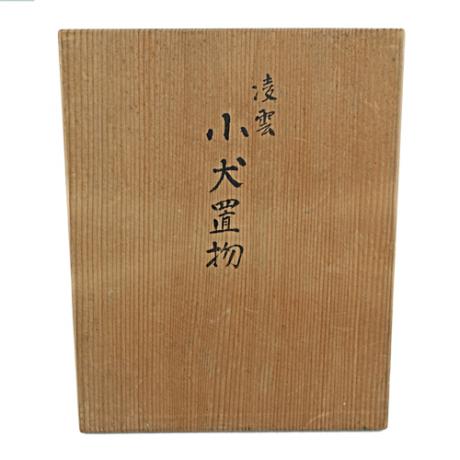 凌雲
小犬置物